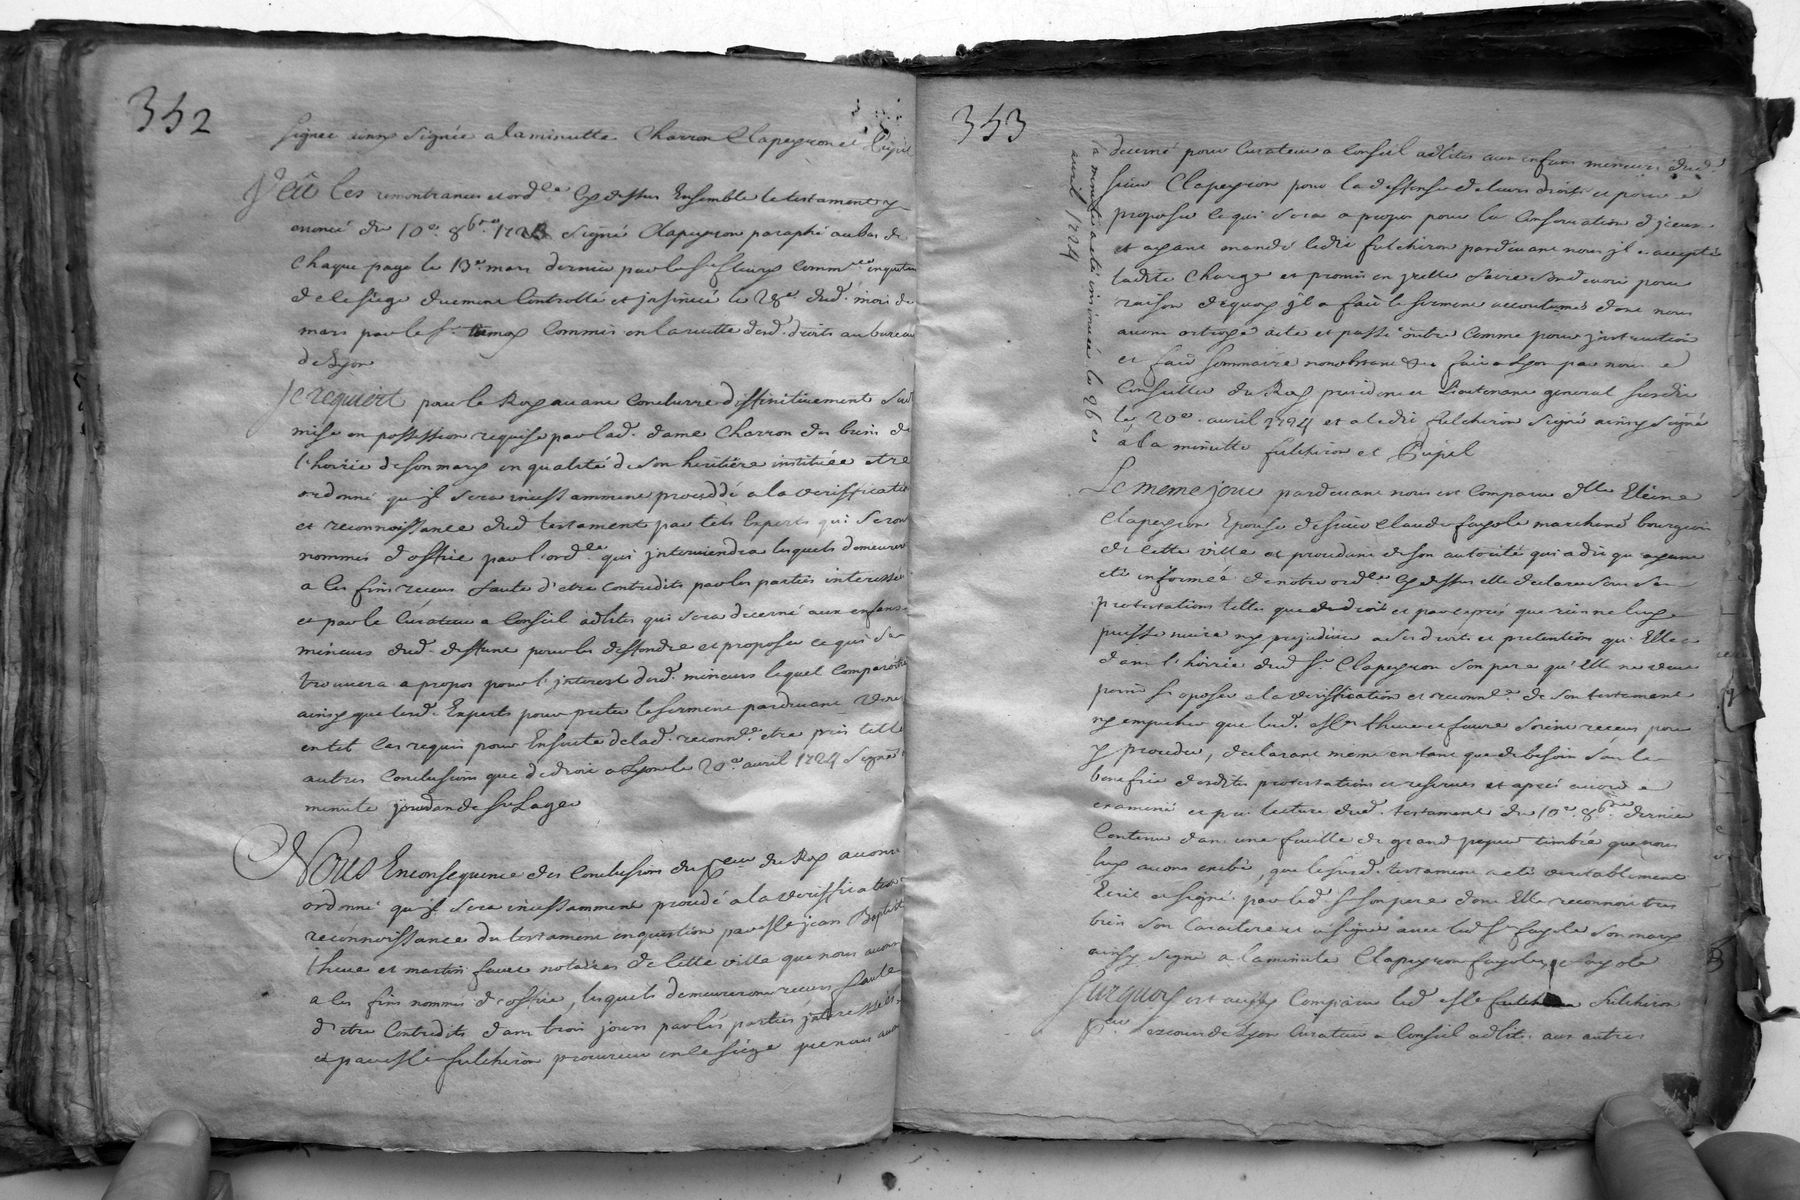 352
signee ainsy signée a la minutte Charron Clapeyron et Pupil
Veu les remontrances et ord.ce Cy dessus Ensemble le testament y
enoncé du 10e 8bre 1723 signé Clapeyron paraphé au bas de
chaque page le 13e mars dernier par le Sr fleury Commre enqueteur
de ce siege duement Controllé et insinué le 28e dud. mois de
mars par le Sr Commis en la recette desd. droits au bureau
de Lyon
Je requiert pour le Roy avant Conclurre diffinitivement sur l
mise en possession requise par lad. dame Charron des biens de
l'hoirie de son mary en qualité de son heritiere instituée etre
ordonné qu'jl sera incessamment proceddé a la veriffication
et reconnoissance dud. testament par tels Experts qui seront
nommés d'office par l'ord.ce qui jnterviendra lesquels demeureront
a ces fins receus faute d'etre Contredits par les parties interessées
et par le Curateur a Conseil adlites qui sera decerné aux enfans
mineurs dud. deffunt pour les deffendre et proposer ce qui se
trouvera a propos pour l'jnterest desd. mineurs lequel Comparoitra
ainsy que lesd. Experts pour preter le serment pardevant vous
en tel Cas requis pour Ensuite de lad. reconn.ce etre pris telles
autres Conclusions que de droit a Lyon le 20e avril 1724 Signé
minute jourdan de St Lager
Nous En consequence des Conclusions du Pcur du Roy avons
ordonné qu'jl sera incessamment procedé a la veriffication
reconnoissance du testament en question par Me jean Baptiste
theve et martin faure notaires de Cette ville que nous avons
a ces fins nommés d'office, lesquels demeureront receus faute
d'etre Contredits dans trois jours par les parties jnteressées
et par Me fulchiron procureur en ce siege que nous avons
353
la minutte a eté insinuée le 26e
avril 1724
decerné pour Curateur a Conseil adlites aux enfans mineurs dud.
sieur Clapeyron pour la deffense de leurs droits et pour
proposer ce qui sera a propos pour la Conservation d'jceux
et ayant mandé ledit fulchiron pardevant nous jl a accepté
ladite Charge et promis en jcelle faire son devoir pour
raison de quoy jl a fait le serment accoutumé dont nous
avons octroyé acte et passé outre Comme pour jnstruction
et fait sommaire nonobstant &c fait a Lyon par nous
Conseiller du Roy president et Lieutenant general susdit
le 20e avril 1724 et a ledit fulchiron signé ainsy signé
à la minutte fulchiron et Pupil
Le meme jour pardevant nous est Comparue Dlle Eleine
Clapeyron Epouse de sieur Claude fayole marchand bourgeois
de Cette ville et procedant de son autorité qui a dit qu'ayant
eté informée de notre ord.ce Cy dessus elle declare sous ses
protestations telles que de droit et par exprés que rien ne luy
puisse nuire ny prejudicier a ses droits et pretentions qu'Elle a
dans l'hoirie dud. Sr Clapeyron son pere qu'Elle ne veut
point s'oposer a la veriffication et reconn.ce de son testament
ny empecher que led. Mes theve et faure soient receus pour
y proceder, declarant meme en tant que de besoin sous le
benefice desdites protestations et reserves et aprés avoir
examiné et pris lecture dud. testament du 10e 8bre dernier
Contenu dans une feuille de grand papier timbré que nous
luy avons exibé, que le susd. testament a eté veritablement
Ecrit et signé par led. Sr son pere dont Elle reconnoit tres
bien son Caractere et a signé avec led. Sr fayole son mary
ainsy signé a la minutte Clapeyron fayole, fayole
Surquoy est aussy Comparu led. Me fulchiron
Pcur ez cours de Lyon Curateur a Conseil adlites aux autres